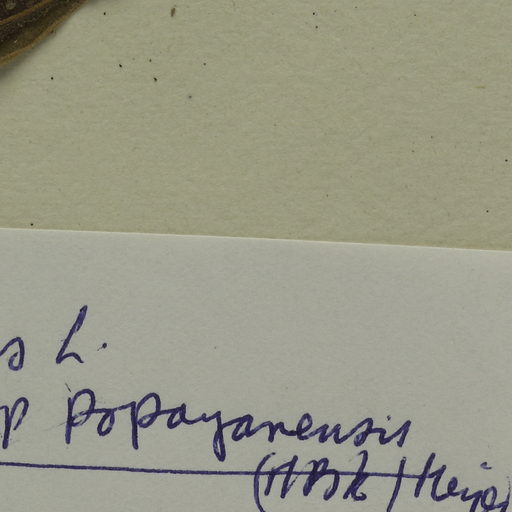 s L.
p popayanensis
(HBK) Heije